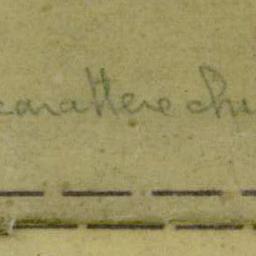 carattere chi